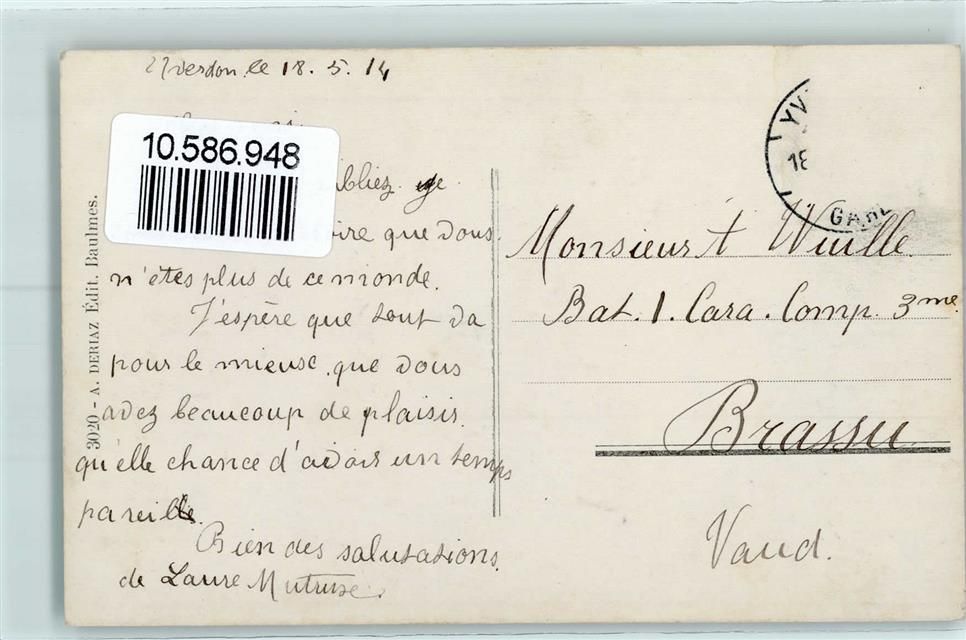 Yverdon, le 18. 5. 14
10.586.948
ge
que vous
n'êtes plus de ce monde.
J'espère que tout va
pour le mieuse, que vous
avez beaucoup de plaisir.
qu'elle chance d'avoir un temps
pareille.
Bien des salutations
de Laure
3020 - A. DERIAZ Édit. Baulmes.
YV
18
GARE
Monsieur A Wuille
Bat. 1. Cara. Comp. 3me
Brassu
Vaud.